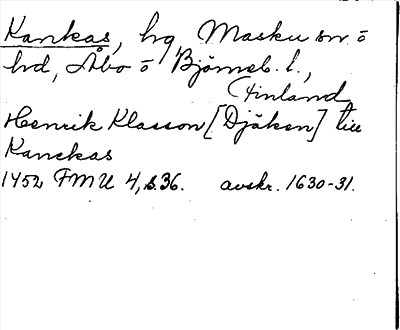 Kankas, hg Masku sn o
hd, Åbo o Björneb. l.,
Finland
Henrik Klasson [Djäken] till
Kanckas
1452 FMU 4, s. 36. avskr. 1630-31.